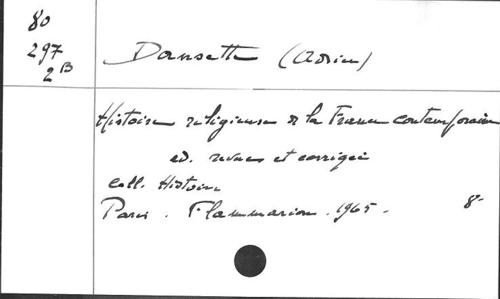 80
297
2B
Dansette (Adrien)
Histoire religieuse de la France contemporaine
ed. revue et corrigée
Coll. Histoire
Paris. Flammarion. 1965.
8-